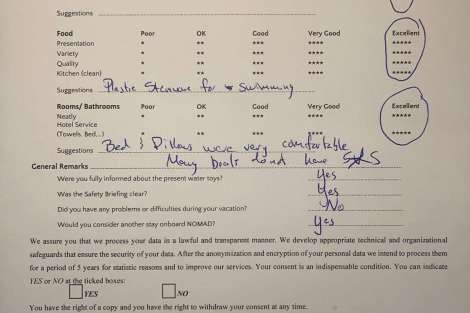 Suggestions
Food Poor OK Good Very Good Excellent
Presentation * ** *** **** *****
Variety * ** *** **** *****
Quality * ** *** **** *****
Kitchen (clean) * ** *** **** *****
Suggestions Plastic for swimming
Rooms/ Bathrooms Poor OK Good Very Good Excellent
Neatly * ** *** **** *****
Hotel Service
(Towels, Bed...) * ** *** **** *****
Suggestions Bed & Pillows were very comfortable
Many boats dont have
General Remarks
Were you fully informed about the present water toys? Yes
Was the Safety Briefing clear? Yes
Did you have any problems or difficulties during your vacation? No
Would you consider another stay onboard NOMAD? Yes
We assure you that we process your data in a lawful and transparent manner. We develop appropriate technical and organizational
safeguards that ensure the security of your data. After the anonymization and encryption of your personal data we intend to process them
for a period of 5 years for statistic reasons and to improve our services. Your consent is an indispensable condition. You can indicate
YES or NO at the ticked boxes:
YES NO
You have the right of a copy and you have the right to withdraw your consent at any time.